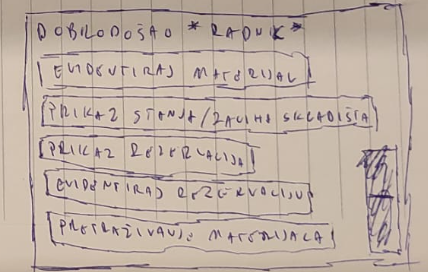 DOBRODOŠAO *RADNIK*
EVIDENTIRAJ MATERIJAL
PRIKAZ STANJA/ZALIHA SKLADIŠTA
PRIKAZ REZERVACIJA
EVIDENTIRAJ REZERVACIJU
PRETRAŽIVANJE MATERIJALA